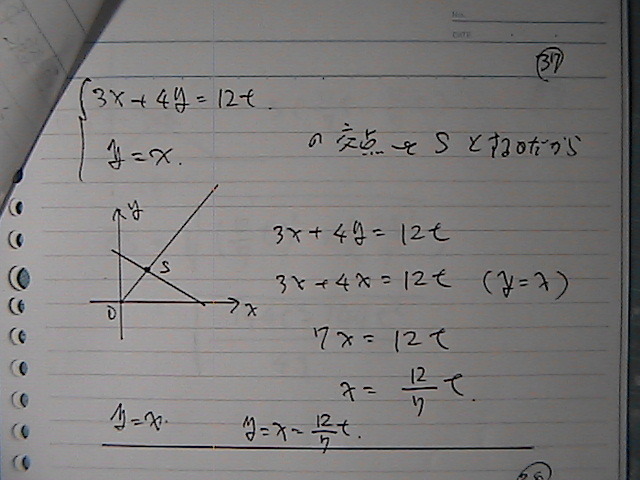 NO.
DATE
37
3x+4y=12t.
y=x.
の交点をSとするのだから
y
S
O
x
3x+4y=12t
3x+4x=12t (y=x)
7x=12t
x=12/7 t.
y=x. y=x=12/7 t.